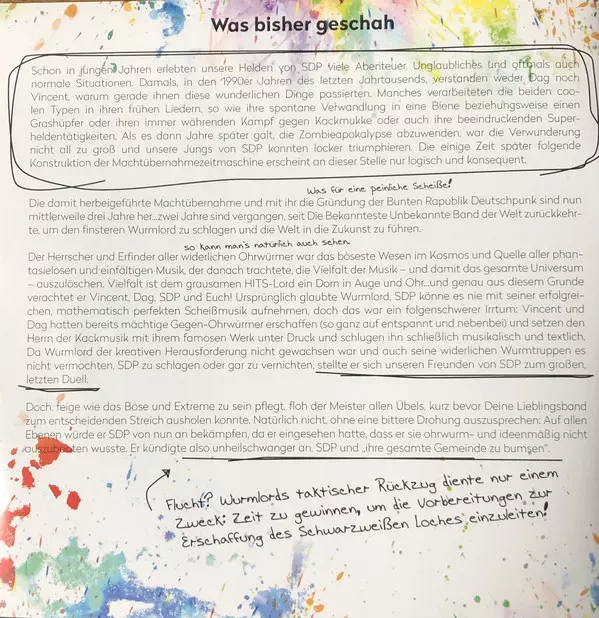 Was bisher geschah
Schon in jungen Jahren erlebten unsere Helden von SDP viele Abenteuer. Unglaubliches und oftmals auch
normale Situationen. Damals, in den 1990er Jahren des letzten Jahrtausends, verstanden weder Dag noch
Vincent, warum gerade ihnen diese wunderlichen Dinge passierten. Manches verarbeiteten die beiden coo-
len Typen in ihren frühen Liedern, so wie ihre spontane Verwandlung in eine Biene beziehungsweise einen
Grashüpfer oder ihren immer währenden Kampf gegen Kackmukke oder auch ihre beeindruckenden Super-
heldentätigkeiten. Als es dann Jahre später galt, die Zombieapokalypse abzuwenden, war die Verwunderung
nicht all zu groß und unsere Jungs von SDP konnten locker triumphieren. Die einige Zeit später folgende
Konstruktion der Machtübernahmezeitmaschine erscheint an dieser Stelle nur logisch und konsequent.
Was für eine peinliche Scheiße!
Die damit herbeigeführte Machtübernahme und mit ihr die Gründung der Bunten Rapublik Deutschpunk sind nun
mittlerweile drei Jahre her...zwei Jahre sind vergangen, seit Die Bekannteste Unbekannte Band der Welt zurückkehr-
te, um den finsteren Wurmlord zu schlagen und die Welt in die Zukunst zu führen.
so kann man's natürlich auch sehen.
Der Herrscher und Erfinder aller widerlichen Ohrwürmer war das böseste Wesen im Kosmos und Quelle aller phan-
tasielosen und einfältigen Musik, der danach trachtete, die Vielfalt der Musik – und damit das gesamte Universum
– auszulöschen. Vielfalt ist dem grausamen HITS-Lord ein Dorn in Auge und Ohr...und genau aus diesem Grunde
verachtet er Vincent, Dag, SDP und Euch! Ursprünglich glaubte Wurmlord, SDP könne es nie mit seiner erfolgrei-
chen, mathematisch perfekten Scheißmusik aufnehmen, doch das war ein folgenschwerer Irrtum: Vincent und
Dag hatten bereits mächtige Gegen-Ohrwürmer erschaffen (so ganz auf entspannt und nebenbei) und setzen den
Herrn der Kackmusik mit ihrem famosen Werk unter Druck und schlugen ihn schließlich musikalisch und textlich.
Da Wurmlord der kreativen Herausforderung nicht gewachsen war und auch seine widerlichen Wurmtruppen es
nicht vermochten, SDP zu schlagen oder gar zu vernichten, stellte er sich unseren Freunden von SDP zum großen,
letzten Duell.
Doch, feige wie das Böse und Extreme zu sein pflegt, floh der Meister allen Übels, kurz bevor Deine Lieblingsband
zum entscheidenden Streich ausholen konnte. Natürlich nicht, ohne eine bittere Drohung auszusprechen: Auf allen
Ebenen würde er SDP von nun an bekämpfen, da er eingesehen hatte, dass er sie ohrwurm- und ideenmäßig nicht
auszubooten wusste. Er kündigte also unheilschwanger an, SDP und „ihre gesamte Gemeinde zu bumsen“.
Flucht? Wurmlords taktischer Rückzug diente nur einem
Zweck: Zeit zu gewinnen, um die Vorbereitungen zur
Erschaffung des Schwarzweißen Loches einzuleiten!